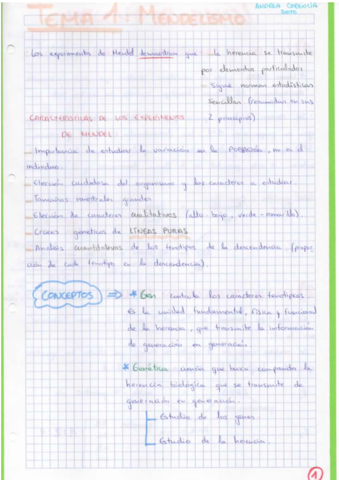 TEMA 1: MENDELISMO
Los experimentos de Mendel demuestran que → la herencia se transmite
por elementos particulados
→ Sigue normas estadísticas
sencillas (resumidas en sus
2 principios)
CARACTERÍSTICAS DE LOS EXPERIMENTOS
DE MENDEL
– Importancia de estudiar la variación en la POBLACIÓN, no en el
individuo.
– Elección cuidadosa del organismo y los caracteres a estudiar.
– Tamaños muestrales grandes
– Elección de caracteres cualitativos (alto-bajo, verde-amarillo)
– Cruces genéticos de LÍNEAS PURAS
– Análisis cuantitativos de los fenotipos de la descendencia (propor
ción de cada fenotipo en la descendencia).
CONCEPTOS ⇒ * Gen: controla los caracteres fenotípicos
es la unidad fundamental, física y funcional
de la herencia, que transmite la información
de generación en generación.
* Genética: ciencia que busca comprender la
herencia biológica que se transmite de
generación en generación.
Estudio de los genes
Estudio de la herencia.
1